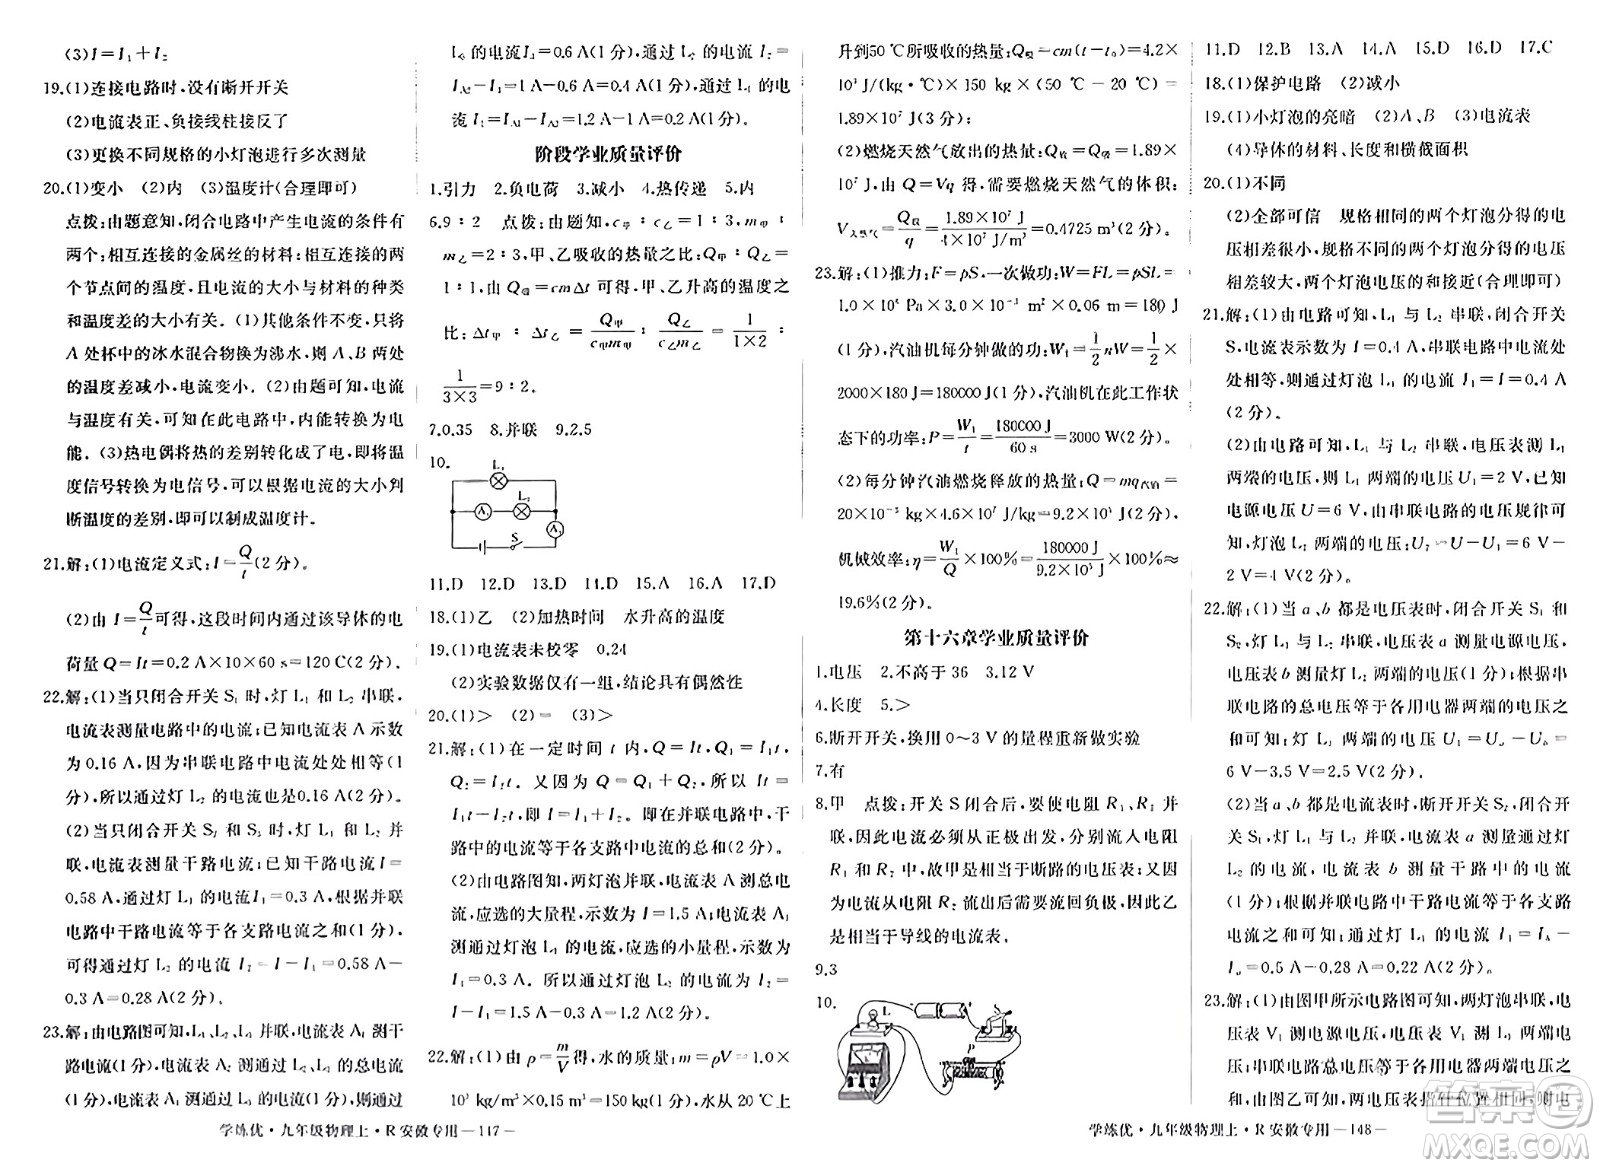 (3)I=I₁+I₂
19.(1)连接电路时,没有断开开关
(2)电流表正、负接线柱接反了
(3)更换不同规格的小灯泡进行多次测量
20.(1)变小 (2)内 (3)温度计(合理即可)
点拨:由题意知,闭合电路中产生电流的条件有
两个:相互连接的金属丝的材料;相互连接的两
个节点间的温度,且电流的大小与材料的种类
和温度差的大小有关。(1)其他条件不变,只将
A 处杯中的冰水混合物换为沸水,则 A、B 两处
的温度差减小,电流变小。(2)由题可知,电流
与温度有关,可知在此电路中,内能转换为电
能。(3)热电偶将热的差别转化成了电,即将温
度信号转换为电信号,可以根据电流的大小判
断温度的差别,即可以制成温度计。
21.解:(1)电流定义式:I=Q/t(2分)。
(2)由 I=Q/t可得,这段时间内通过该导体的电
荷量 Q=It=0.2 A×10×60 s=120 C(2分)。
22.解:(1)当只闭合开关 S₁ 时,灯 L₁ 和 L₂ 串联,
电流表测量电路中的电流;已知电流表 A 示数
为 0.16 A,因为串联电路中电流处处相等(1
分),所以通过灯 L₂ 的电流也是0.16 A(1分)。
(2)当只闭合开关 S₂ 和 S₃ 时,灯 L₁ 和 L₂ 并
联,电流表测量干路电流;已知电流表 A 示数为
0.58 A,通过灯 L₁ 的电流I₁=0.3 A,根据并联
电路中干路电流等于各支路电流之和(1分),
可得通过灯 L₂ 的电流 I₂=I-I₁=0.58 A-
0.3 A=0.28 A(2分)。
23.解:由电路图可知,L₁、L₂、L₃ 并联,电流表A测干
路电流(1分),电流表 A₂ 测 L₂、L₃ 的总电流
(1分),电流表 A₁ 测通过 L₃ 的电流(1分);通过
学练优·九年级物理上·R安徽专用—147—
L₃ 的电流I₃=0.6 A(1分),通过 L₂ 的电流 I₂=
I_A2-I₃=1 A-0.6 A=0.4 A(1分),通过 L₁ 的电
流 I₁=I_A1-I_A2=1.2 A-1 A=0.2 A(1分)。
阶段学业质量评价
1.引力 2.负电荷 3.减小 4.热传递 5.内
6.9∶2 点拨:由题知,c甲∶c乙=1∶3,m甲∶
m乙=2∶3,甲、乙吸收的热量之比:Q甲∶Q乙=
1∶1,由 Q吸=cmΔt 可得,甲、乙升高的温度之
比:Δt甲∶Δt乙=Q甲/(c甲m甲)∶Q乙/(c乙m乙)=1/(1×2)∶
1/(3×3)=9∶2。
7.0.35 8.并联 9.2.5
10.
L₁
A₁
L₂
A
S
11.D 12.D 13.D 14.D 15.A 16.A 17.D
18.(1)乙 (2)加热时间 水升高的温度
19.(1)电流表未校零 0.24
(2)实验数据仅有一组,结论具有偶然性
20.(1)> (2)= (3)>
21.解:(1)在一定时间 t 内,Q=It,Q₁=I₁t,
Q₂=I₂t。又因为 Q=Q₁+Q₂,所以 It=
I₁t+I₂t,所以 I=I₁+I₂,即在并联电路中,干
路中的电流等于各支路中电流的总和(2分)。
(2)由电路图知,两灯泡并联,电流表 A 测总电
流,应选的大量程,示数为 I=1.5 A,电流表A₁
测通过灯泡 L₁ 的电流,应选的小量程,示数为
I₁=0.3 A。所以通过灯泡 L₂ 的电流 I₂=
I-I₁=1.5 A-0.3 A=1.2 A(2分)。
22.解:(1)由 ρ=m/V得,水的质量:m=ρV=1.0×
10³ kg/m³×0.15 m³=150 kg(1分),水从 20 ℃上
升到50 ℃所吸收的热量:Q吸=cm(t-t₀)=4.2×
10³ J/(kg·℃)×150 kg×(50 ℃-20 ℃)=
1.89×10⁷ J(3分);
(2)燃烧天然气放出的热量:Q放=Q吸=1.89×
10⁷ J,由 Q=Vq 得,需要燃烧天然气的体积:
V天然气=Q放/q=1.89×10⁷ J/4×10⁷ J/m³=0.4725 m³(2分)。
23.解:(1)推力:F=pS,一次做功:W=FL=pSL=
1.0×10⁶ Pa×3.0×10⁻³ m²×0.06 m=180 J
(1分),汽油机每分钟做的功:W₁=1/2nW=1/2×
2000×180 J=180000 J(1分),汽油机在此工作状
态下的功率:P=W₁/t=180000 J/60 s=3000 W(2分)。
(2)每分钟汽油燃烧释放的热量:Q=mq汽油=
20×10⁻³ kg×4.6×10⁷ J/kg=9.2×10⁵ J(2分),
机械效率:η=W₁/Q×100%=180000 J/9.2×10⁵ J×100%≈
19.6%(2分)。
第十六章学业质量评价
1.电压 2.不高于 36 3.12 V
4.长度 5.>
6.断开开关,换用 0~3 V 的量程重新做实验
7.有
8.甲 点拨:开关 S 闭合后,要使电阻 R₁、R₂ 并
联,因此电流必须从正极出发,分别流入电阻
R₁ 和 R₂ 中,故甲是相当于断路的电压表;又因
为电流从电阻 R₂ 流出后要流回负极,因此乙
是相当于导线的电流表。
9.3
10.
L
P
11.D 12.B 13.A 14.A 15.D 16.D 17.C
18.(1)保护电路 (2)减小
19.(1)小灯泡的亮暗 (2)A、B (3)电流表
(4)导体的材料、长度和横截面积
20.(1)不同
(2)全部可信 规格相同的两个灯泡分得的电
压相差很小,规格不同的两个灯泡分得的电压
相差较大,两个灯泡电压的和接近(合理即可)
21.解:(1)由电路可知,L₁ 与 L₂ 串联,闭合开关
S,电流表示数为 I=0.4 A,串联电路中电流处
处相等,则通过灯泡 L₁ 的电流 I₁=I=0.4 A
(2分)。
(2)由电路可知,L₁ 与 L₂ 串联,电压表测 L₁
两端的电压,所以 L₁ 两端的电压 U₁=2 V,已知
电源电压 U=6 V,由串联电路的电压规律可
知,灯泡 L₂ 两端的电压:U₂=U-U₁=6 V-
2 V=4 V(2分)。
22.解:(1)当 a、b 都是电压表时,闭合开关 S₁ 和
S₂,灯 L₁ 与 L₂ 串联,电压表 a 测量电源电压,
电压表 b 测量灯 L₂ 两端的电压(1分);根据串
联电路的总电压等于各用电器两端的电压之
和可知:灯 L₁ 两端的电压 U₁=U-U₂=
6 V-3.5 V=2.5 V(2分)。
(2)当 a、b 都是电流表时,断开开关 S₂,闭合开
关 S₁,灯 L₁ 与 L₂ 并联,电流表 a 测量通过灯
L₂ 的电流,电流表 b 测量干路中的电流
(1分);根据并联电路中干路电流等于各支路
电流之和可知:通过灯 L₁ 的电流 I₁=I_b-
I_a=0.5 A-0.28 A=0.22 A(2分)。
23.解:(1)由图甲所示电路图可知,两灯泡串联,电
压表 V₁ 测电源电压,电压表 V₂ 测 L₂ 两端电
压,由于串联电路总电压等于各部分电压之和,
因此电压表 V₁ 示数大于电压表 V₂ 示数(1分),
学练优·九年级物理上·R安徽专用—148—
答案圈
MXQE.COM